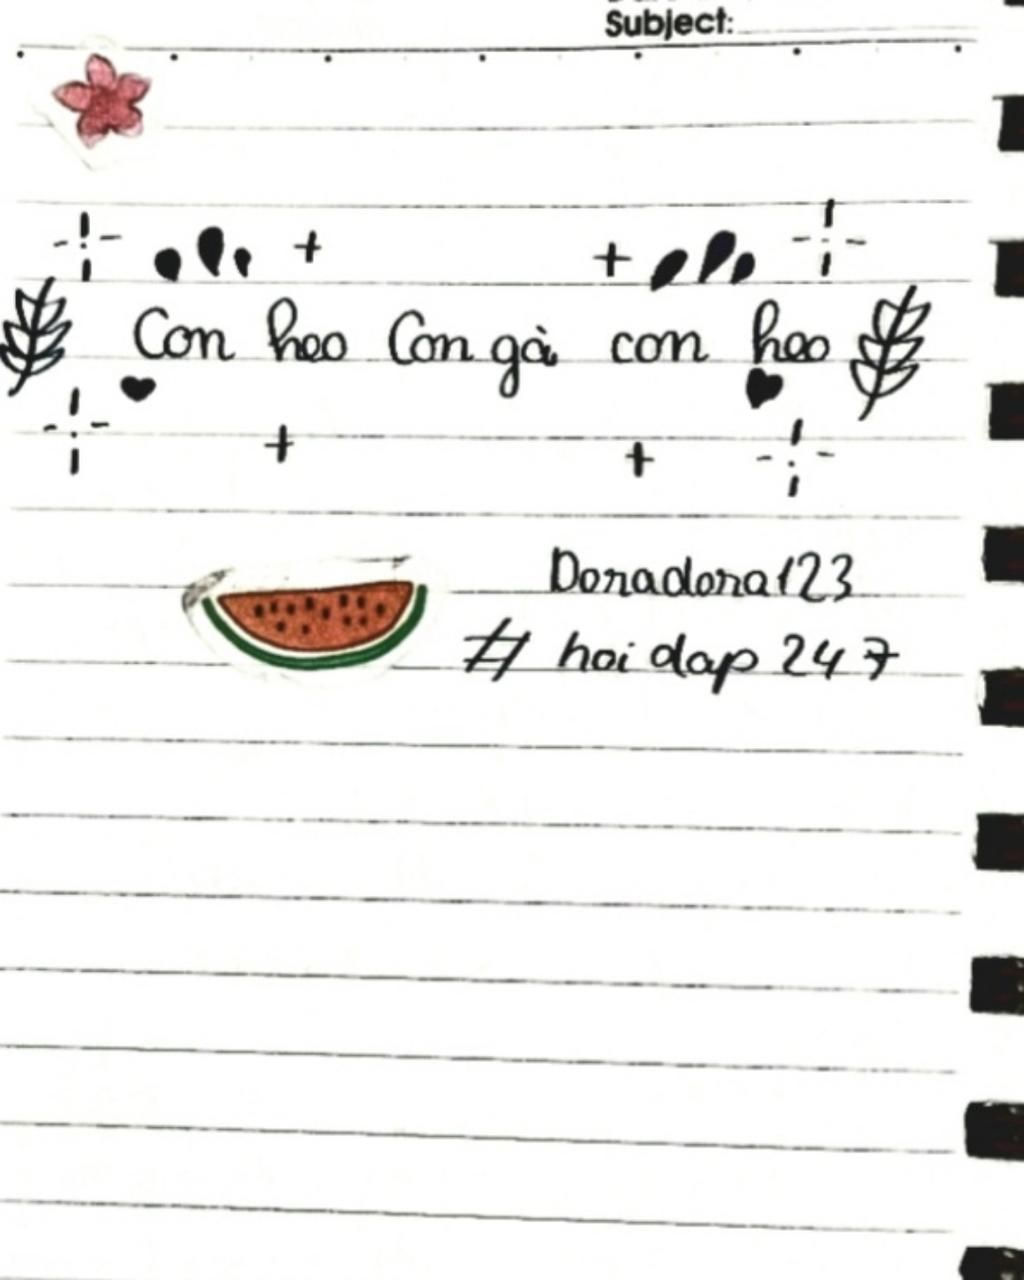 Subject:
Con heo Con gà con heo
Donadona123
# hoi dap 247